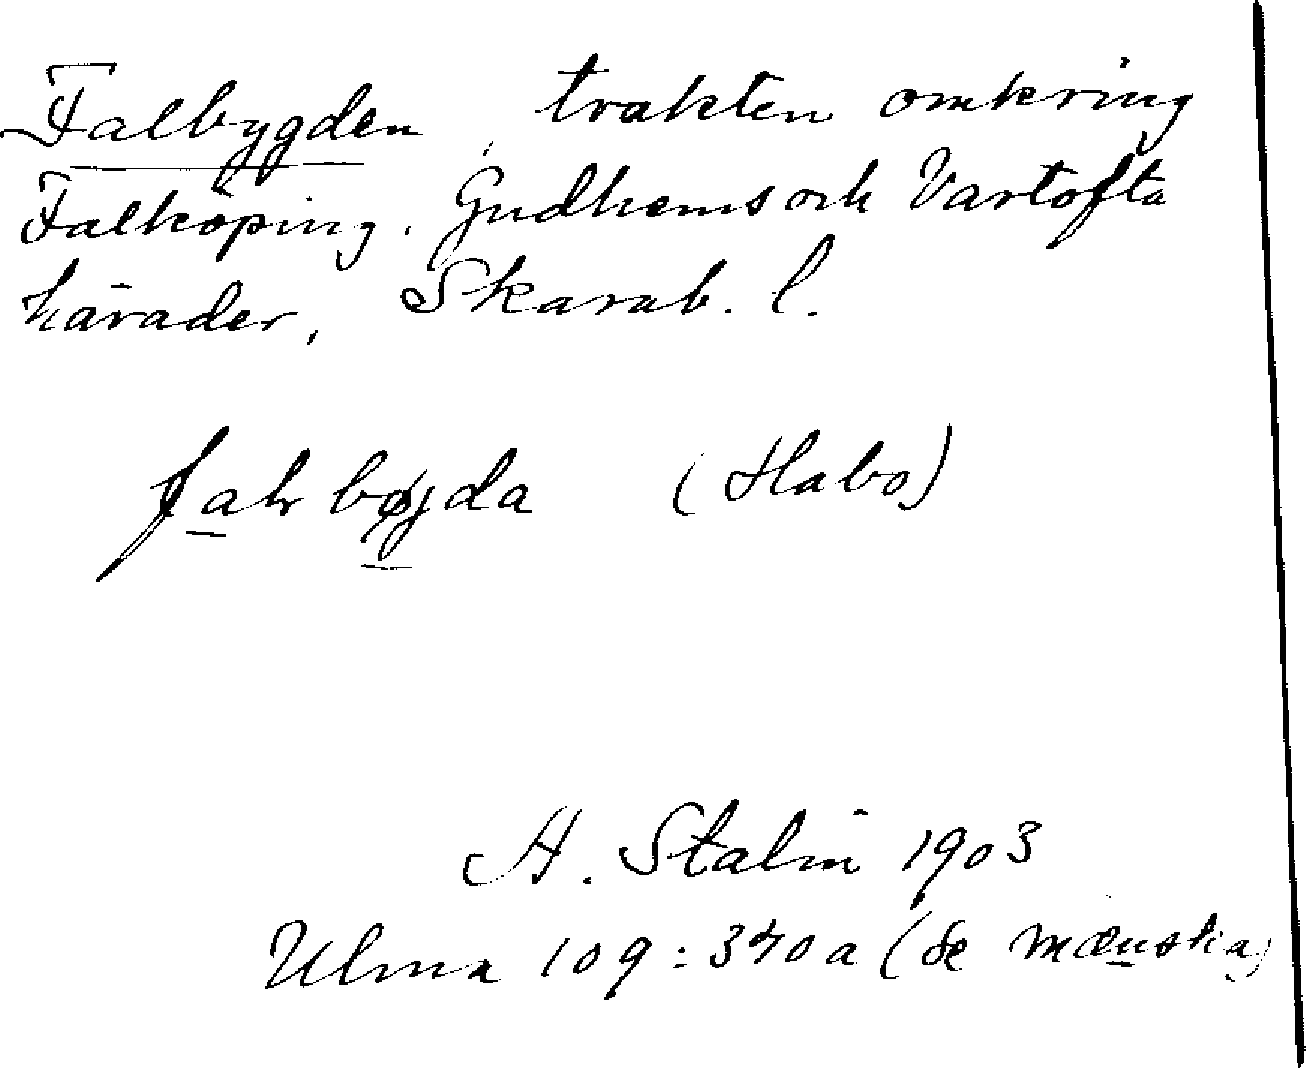 Falbygden, trakten omkring
Falköping. Gudhems och Vartofta
härader, Skarab. l.
(Habo)
A. Stalin 1903
Ulma 109:370a (se mænskia)